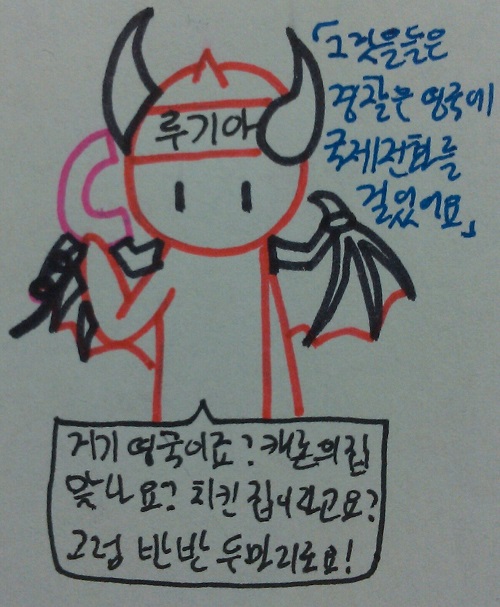 루기아
「그것을들은
경찰은 영국에
국제전화를
걸었어요」
저기 영국이죠? 캐론의집
맞나요? 치킨집이라고요?
그럼 반반 두마리로요!